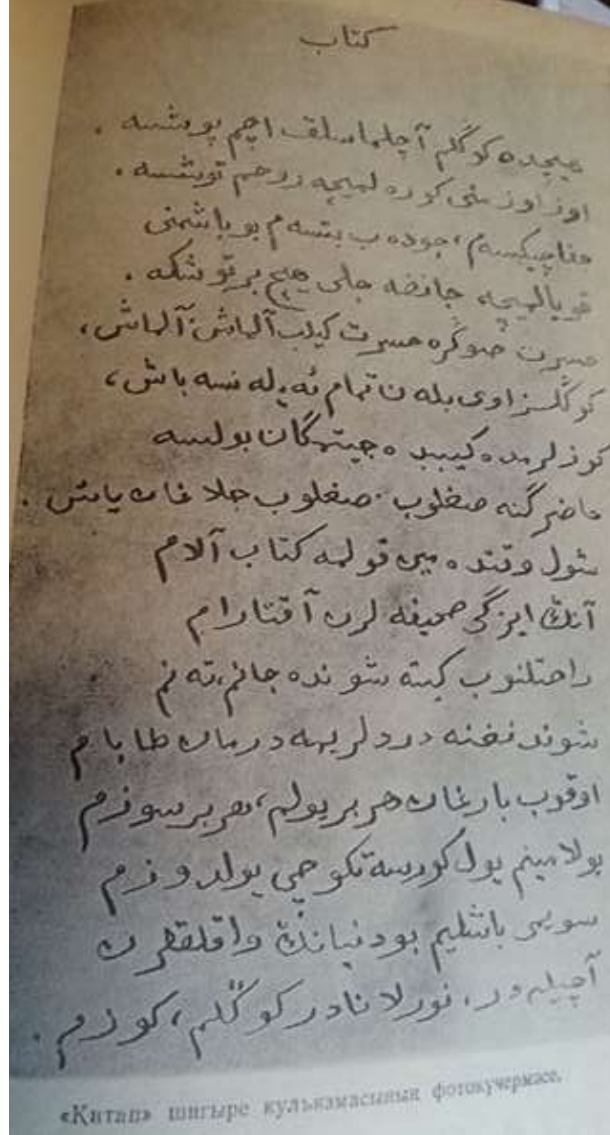 كتاب
هيچده كوڭلم آچلماسلق اچم پوشسه .
اوز اوزمنى كوره لميچه روحم توشسه .
جفا چيكسه م، جوده ب بتسه م بو باشمنى
قويالميچه جانغه جلى هيچ بر توشكه .
حسرت صوڭره حسرت كيلب آلماش آلماش،
كوڭلسز اوى بله ن تمام ئه يله نسه باش،
كوزلرمده كيبب ده جيتمگان بولسه
حاضر گنه صغلوب صغلوب جلاغان ياش .
شول وقتده مين قولمه كتاب آلام
آنڭ ايزگى صحيفه لرن آقتارام
راحتلنوب كيته شونده جانم، ته نم
شوندن غنه دردلريمه درمان طابام
اوقوب بارغان هر بر يولم، هر بر سوزم
بولا مينم يول كورسه تكوچى يولدوزم
سويمى باشليم بو دنيانڭ واقلقلرن
آچيله در، نورلانادر كوڭلم، كوزم .
«Китап» шигыре кулъязмасының фотокүчермәсе.